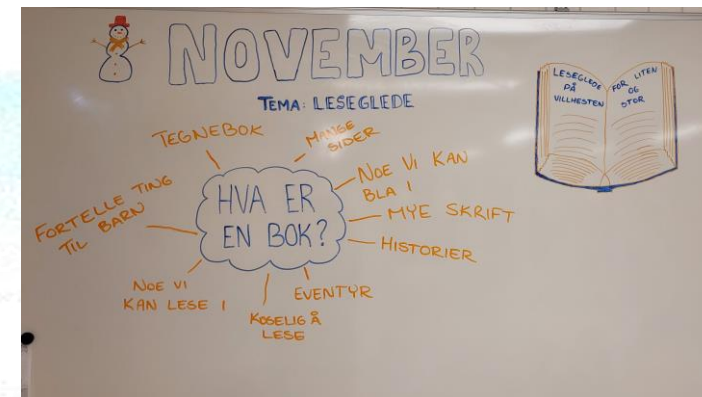 NOVEMBER
TEMA: LESEGLEDE
LESEGLEDE
PÅ
VILLHESTEN
FOR LITEN
OG
STOR
TEGNEBOK
MANGE
SIDER
NOE VI KAN
BLA I
MYE SKRIFT
HISTORIER
EVENTYR
KOSELIG Å
LESE
NOE VI
KAN LESE I
FORTELLE TING
TIL BARN
HVA ER
EN BOK?